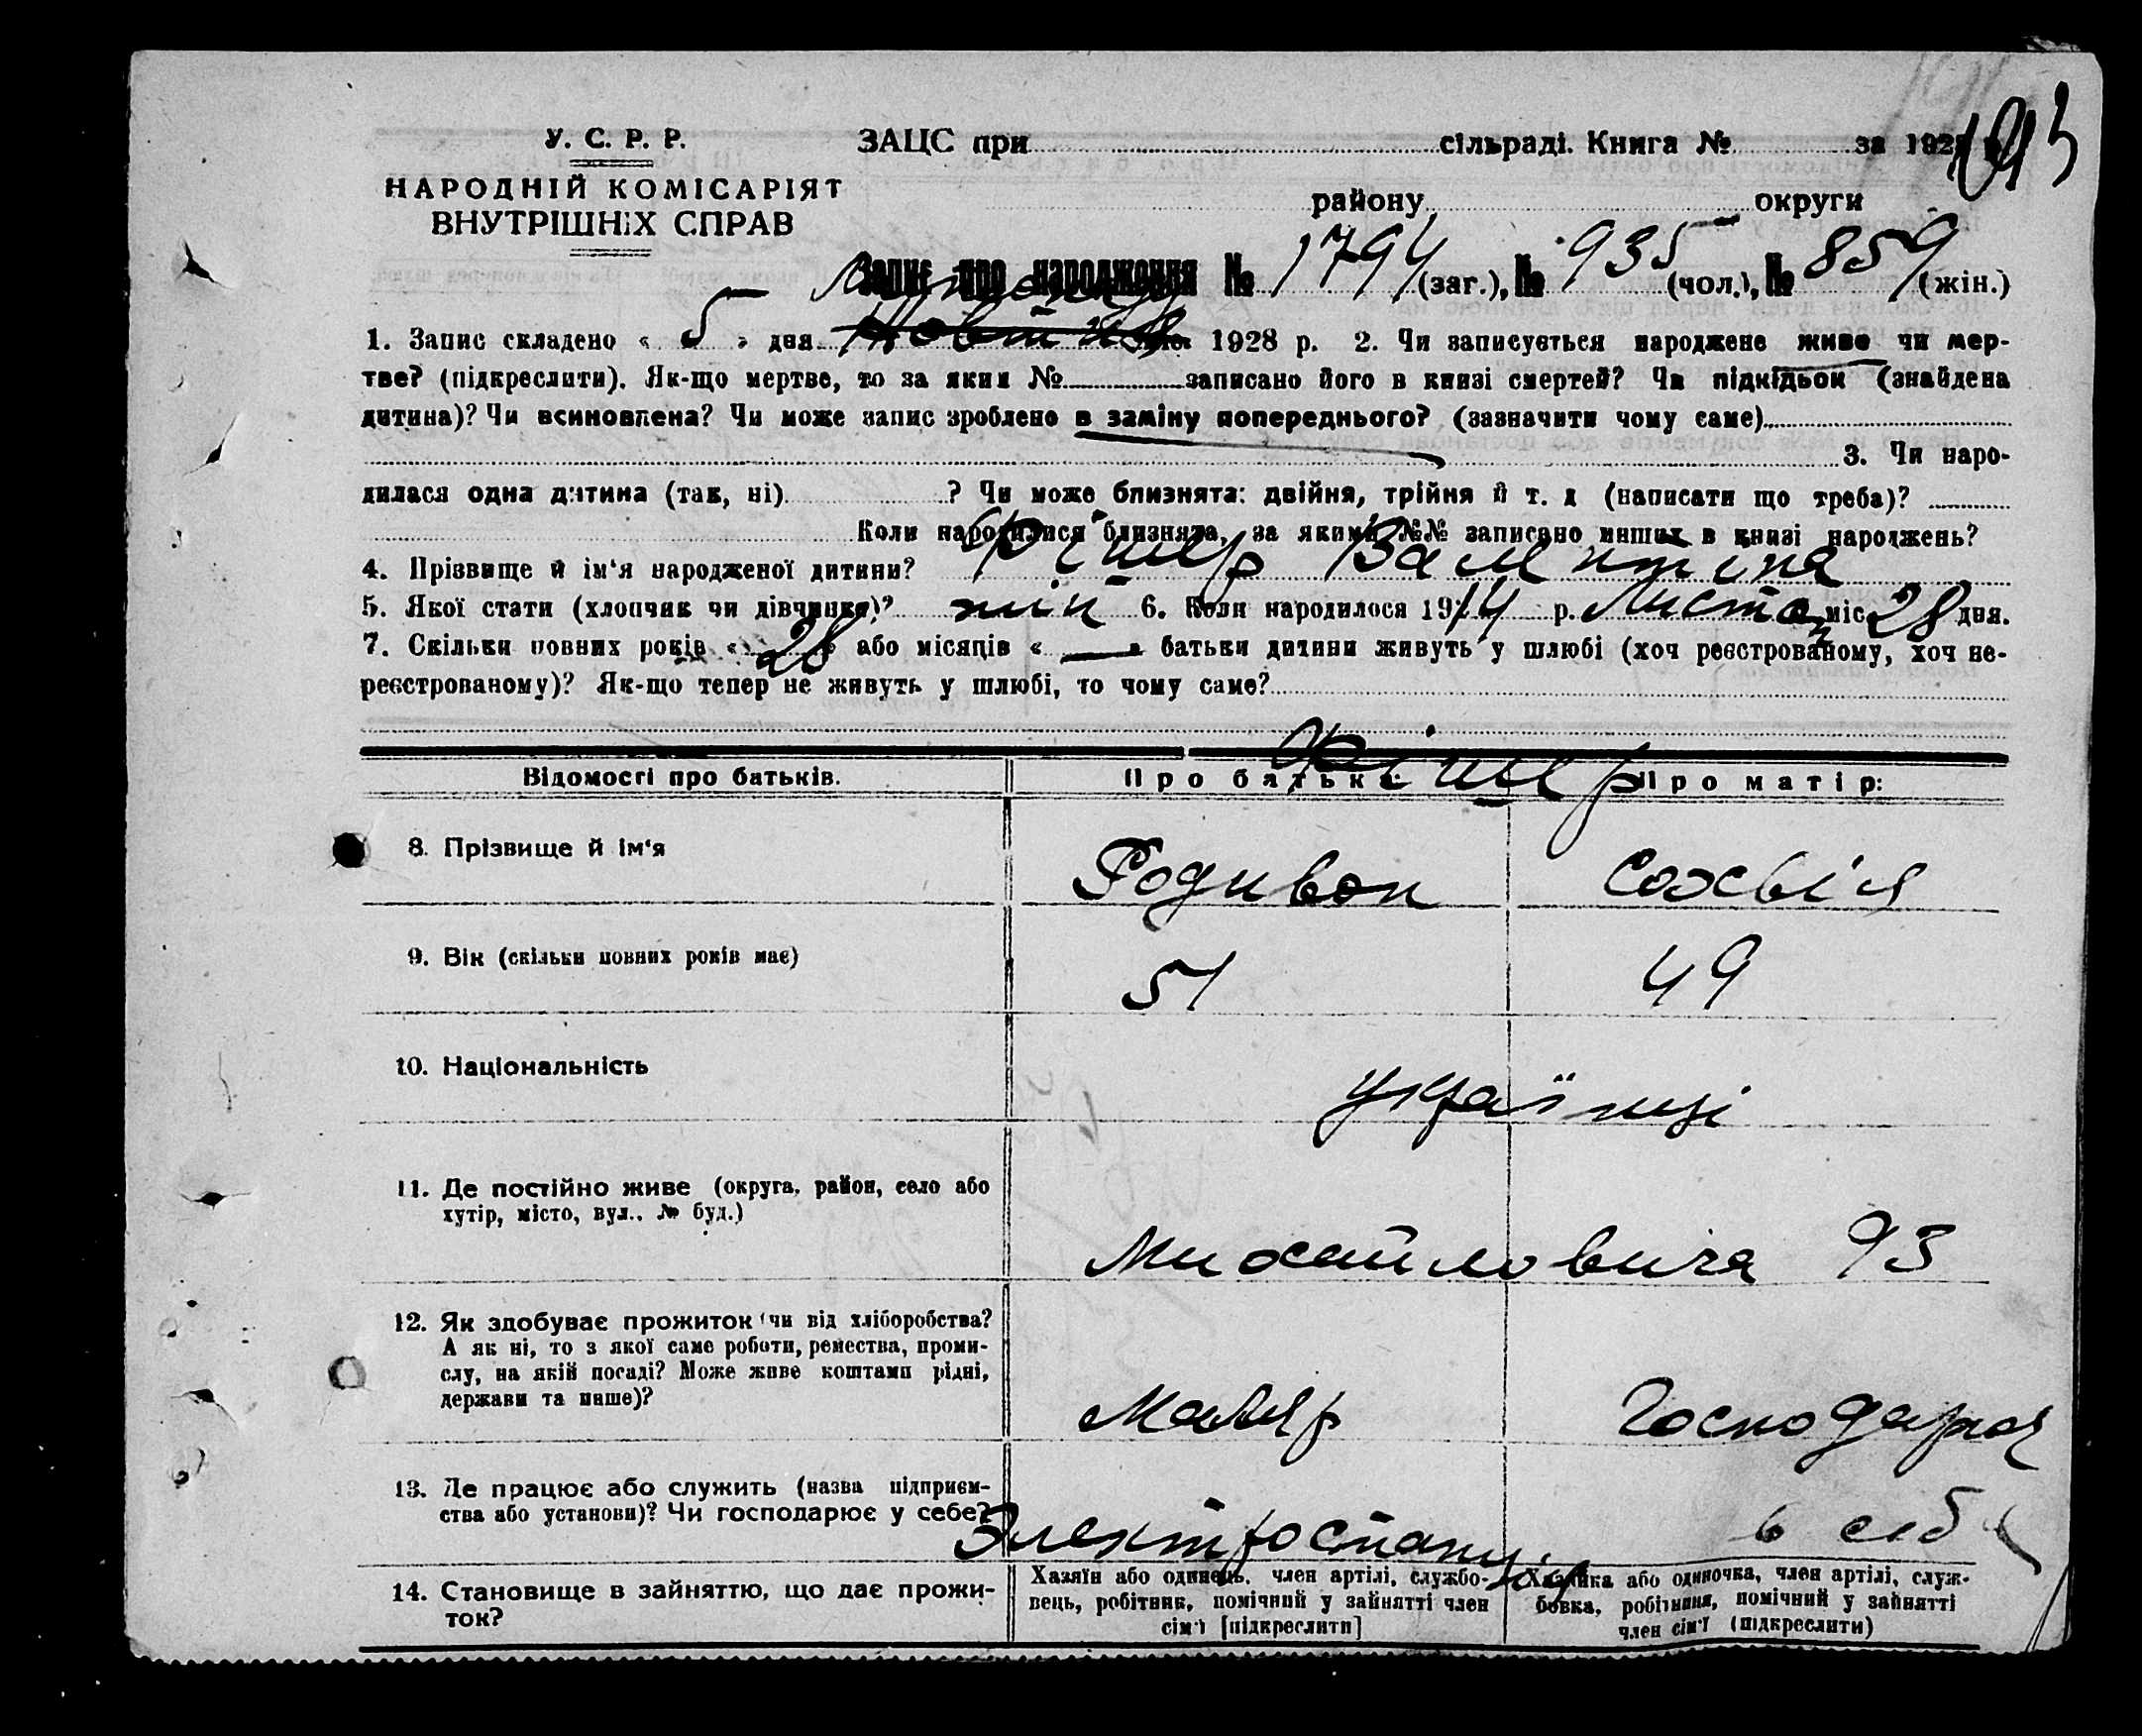 У. С. Р. Р.
НАРОДНІЙ КОМІСАРІЯТ
ВНУТРІШНІХ СПРАВ
ЗАЦС при сільраді. Книга № за 192
району округи
Запис про народження № 1794 (заг.), № 935 (чол.), № 859 (жін.)
1. Запис складено « 5 » дня 1928 р. 2. Чи записується народжене живе чи мер-
тве? (підкреслити). Як-що мертве, то за яким № записано його в книзі смертей? Чи підкідьок (знайдена
дитина)? Чи всиновлена? Чи може запис зроблено в заміну попереднього? (зазначити чому саме)
3. Чи наро-
дилася одна дитина (так, ні) ? Чи може близнята: двійня, трійня й т. д (написати що треба)?
Коли народилися близнята, за якими №№ записано инших в книзі народжень?
4. Прізвище й ім'я народженої дитини? Фішер Валентіна
5. Якої стати (хлопчик чи дівчинка)? жін 6. Коли народилося 1914 р. Листоп міс. 28 дня.
7. Скільки повних років « 28 » або місяців « — » батьки дитини живуть у шлюбі (хоч реєстрованому, хоч не-
реєстрованому)? Як-що тепер не живуть у шлюбі, то чому саме?
Відомості про батьків. Про батька: Про матір:
Фішер
8. Прізвище й ім'я Родивон Софія
9. Вік (скільки повних років має) 51 49
10. Національність українці
11. Де постійно живе (округа, район, село або
хутір, місто, вул., № буд.)
Михайловича 93
12. Як здобуває прожиток (чи від хліборобства?
А як ні, то з якої саме роботи, ремества, проми-
слу, на якій посаді? Може живе коштами рідні,
держави та инше)?
Маляр Господарка
13. Де працює або служить (назва підприєм-
ства або установи)? Чи господарює у себе?
Электростанц в себе
14. Становище в зайняттю, що дає прожи-
ток?
Хазяїн або одинець, член артілі, службо-
вець, робітник, помічний у зайнятті член
сім'ї [підкреслити]
Хазяйка або одиночка, член артілі, служ-
бовка, робітниця, помічний у зайнятті
член сім'ї (підкреслити)